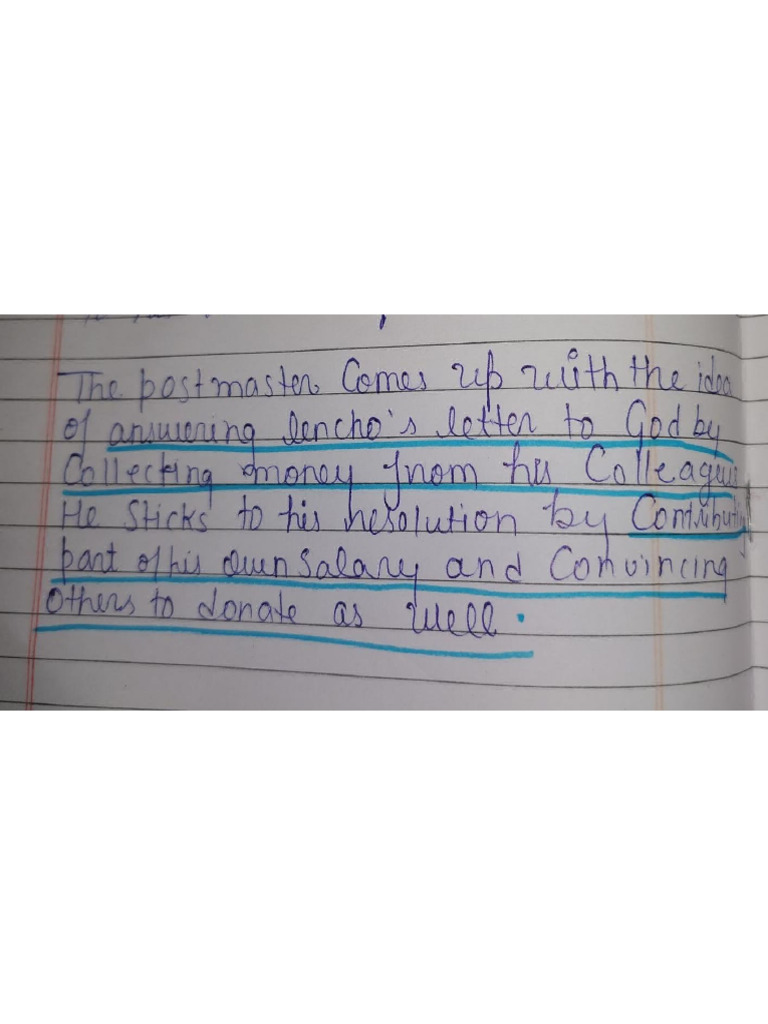 The postmaster Comes up with the idea
of answering lencho's letter to God by
Collecting money from his Colleagues
He Sticks to his resolution by Contributing
part of his own Salary and Convincing
others to donate as well.